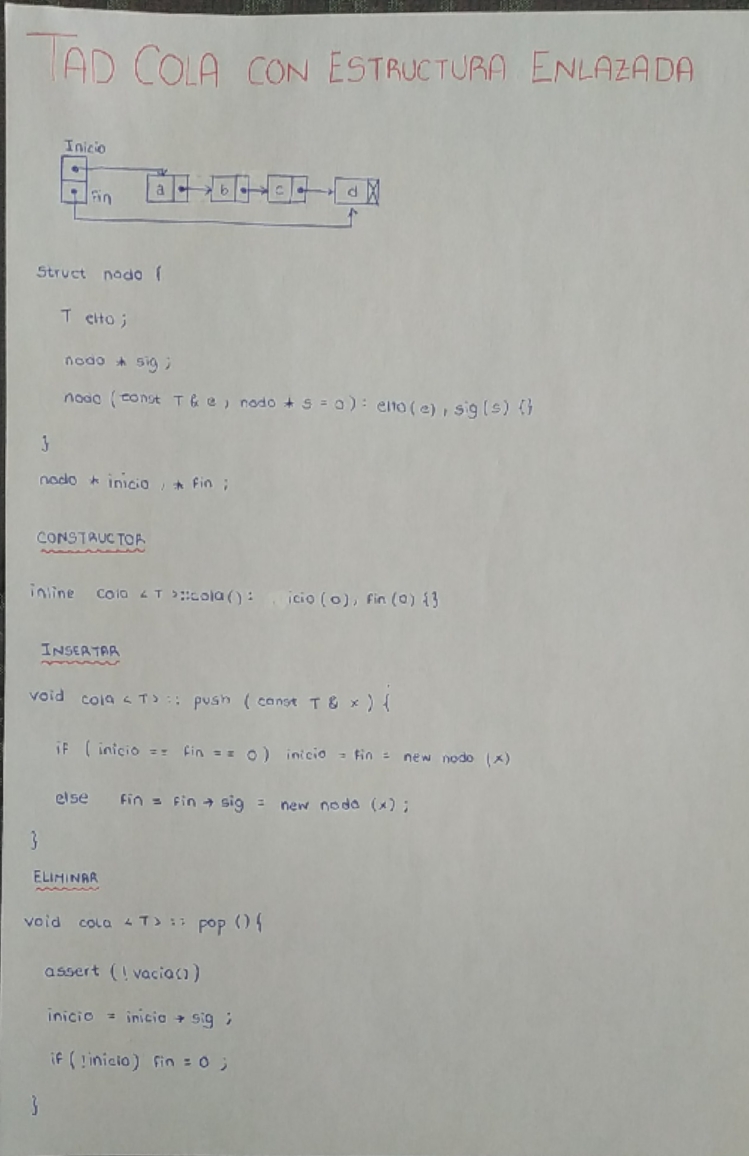 TAD COLA CON ESTRUCTURA ENLAZADA
Inicio
a b c d
Fin
Struct nodo {
T elto;
nodo * sig;
nodo (const T & e, nodo * s = 0): elto(e), sig(s) {}
}
nodo * inicio, * fin;
CONSTRUCTOR
inline cola <T>::cola(): icio(0), fin(0) {}
INSERTAR
void cola <T>:: push (const T & x) {
if (inicio == fin == 0) inicio = fin = new nodo (x)
else fin = fin → sig = new nodo (x);
}
ELIMINAR
void cola <T> :: pop () {
assert (!vacia()
inicio = inicio → sig;
if (!inicio) fin = 0;
}